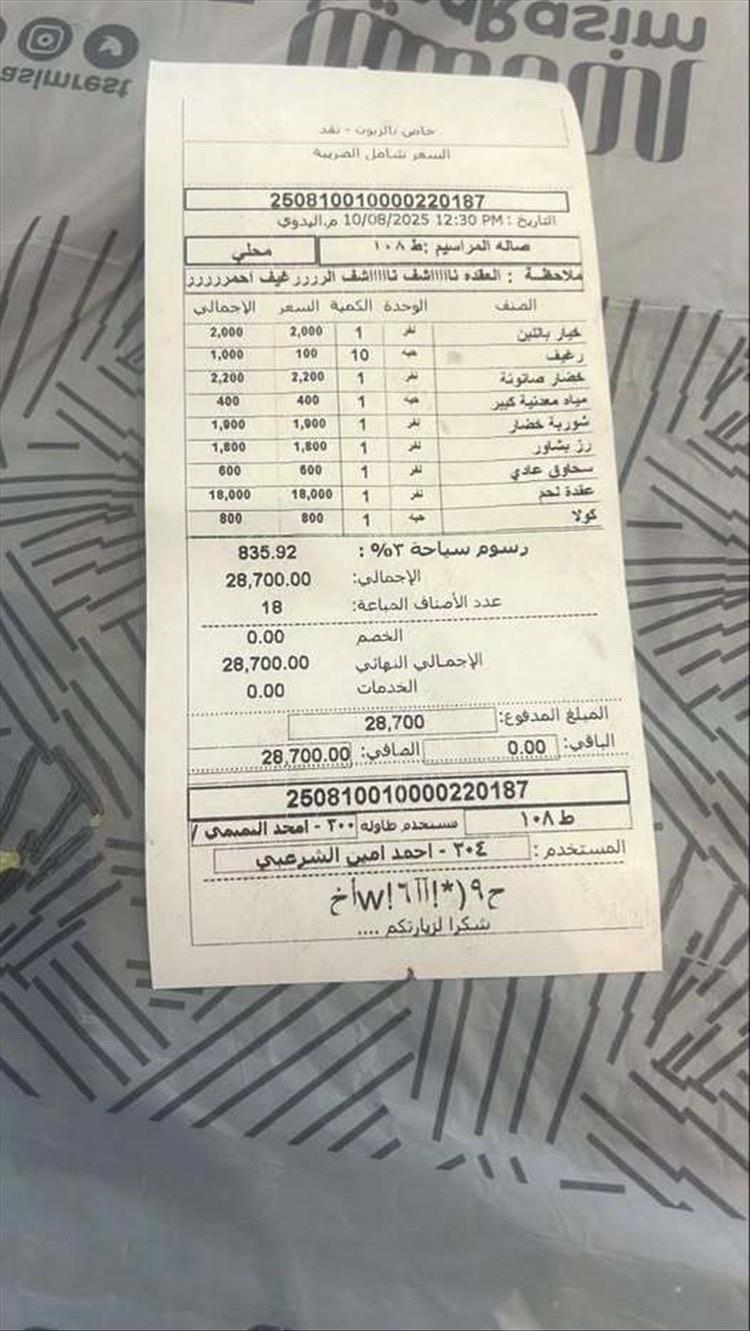 asimrest
خاص بالزبون - نقد
السعر شامل الضريبة
250810010000220187
التاريخ : 10/08/2025 12:30 PM م.البدوي
صاله المراسيم :ط ١٠٨ محلي
ملاحظة : العقده نااااشف نااااشف الرررر غيف احمررررر
الصنف الوحدة الكمية السعر الإجمالي
خيار باللبن نفر 1 2,000 2,000
رغيف حبه 10 100 1,000
خضار صانونة نفر 1 2,200 2,200
مياه معدنية كبير حبه 1 400 400
شوربة خضار نفر 1 1,900 1,900
رز بشاور نفر 1 1,800 1,800
سحاوق عادي نفر 1 600 600
عقدة لحم نفر 1 18,000 18,000
كولا حبه 1 800 800
رسوم سياحة ٣% : 835.92
الإجمالي: 28,700.00
عدد الأصناف المباعة: 18
الخصم 0.00
الإجمالي النهائي 28,700.00
الخدمات 0.00
المبلغ المدفوع: 28,700
الباقي: 0.00 الصافي: 28,700.00
250810010000220187
ط ١٠٨ مستخدم طاوله ٢٠٠ - امجد النميمي /
المستخدم : ٣٠٤ - احمد امين الشرعبي
شكرا لزيارتكم ....